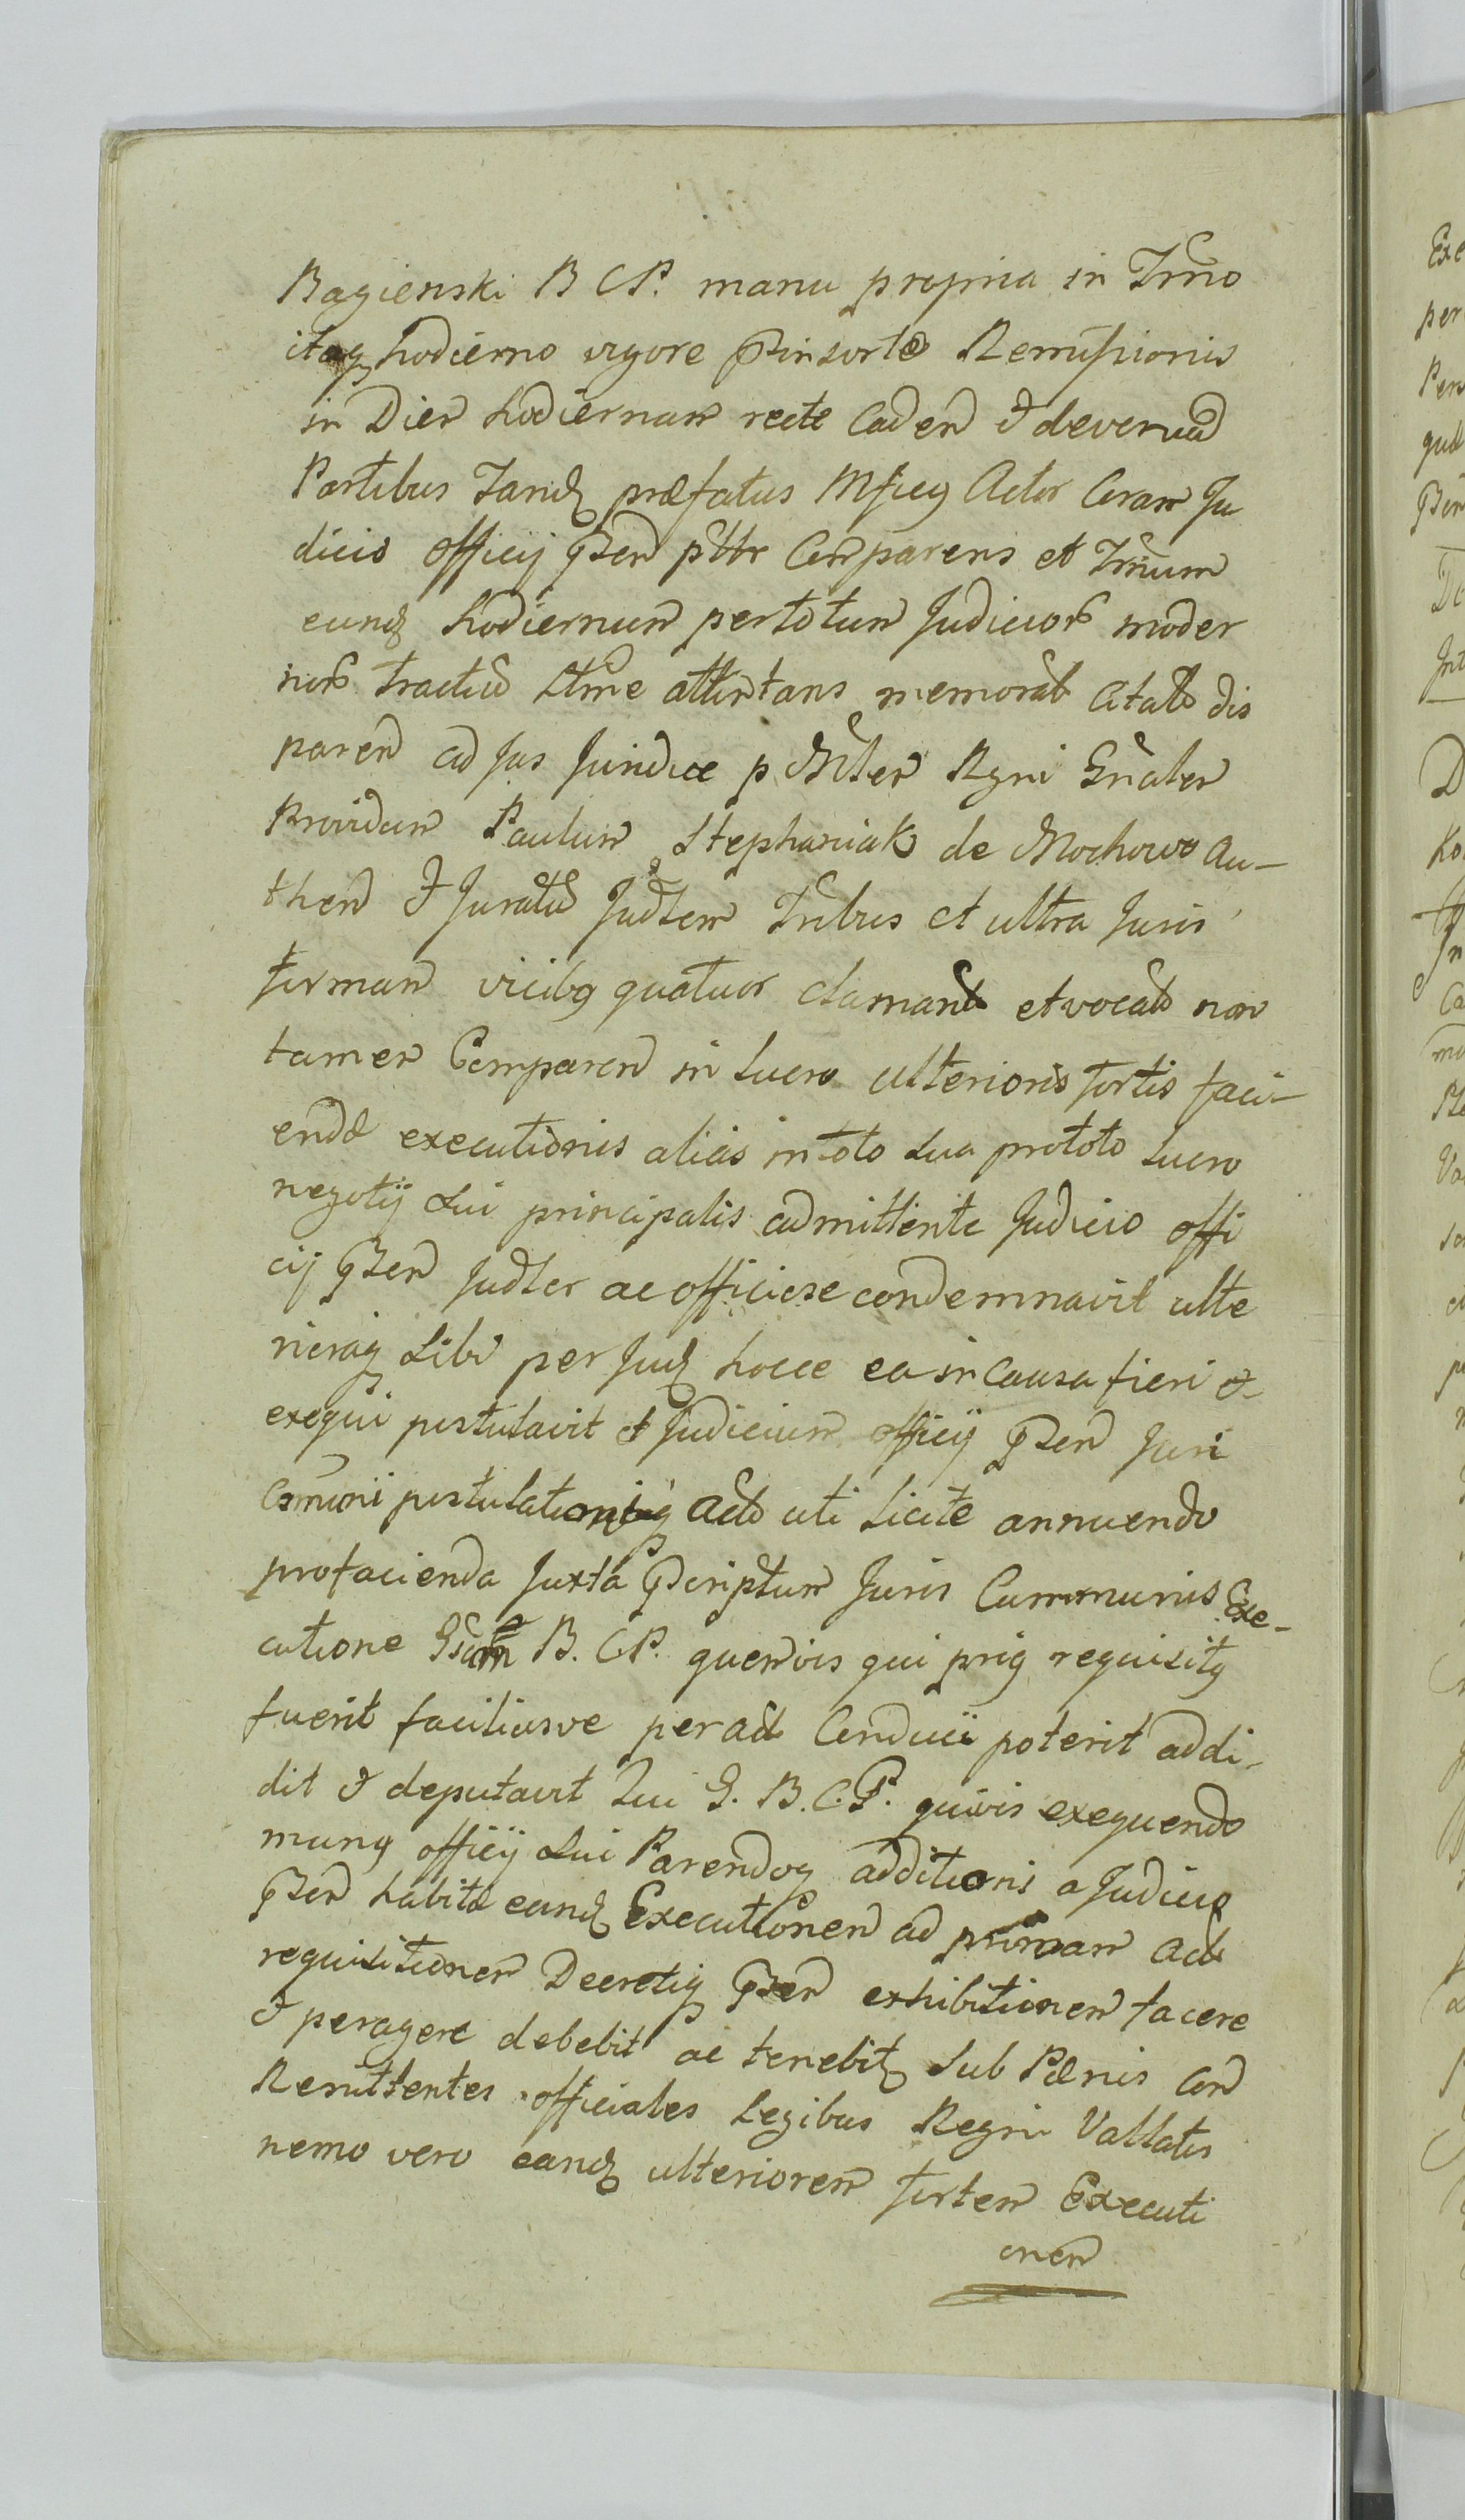 Bagienski B C P. manu propria in Trno
itaq hodierno vigore Psinsertæ Remissionis
in Diem hodiernam recte Caden & devenien
Partibus Tandq præfatus Mficq Actor Coram Ju
dicio officij Psen psttr Comparens et Trnum
eundq hodiernum per totum Judicior moder
nor tractum Ltme attentans memorat Citato dis
paren ad Jus Juridice p Mter Rgni Gnalem
Providum Paulum Stephaniak de Mochowo Au-
then & Juratum Judtem Tribus et ultra Juris
formam vicibq quatuor clamand et vocato non
tamen Comparen in Lucro ulterioris fortis faci-
endæ executionis alias in toto sua pro toto Lucro
negotij sui principalis admittente Judicio offi
cij Psen Judter ac officiose condemnavit ulte
rioraq sibi per Judq hocce ea in Causa fieri &
exequi postulavit & Judicium officij Psen Juri
Comuni postulationiq Acto uti licite annuendo
pro facienda Juxta Pscriptum Juris Communis Exe-
cutione B. C. P. quemvis qui priq requisitq
fuerit faciliusve per Act Conduci poterit addi-
dit & deputavit Lui G. B. C. P. quivis exequendo
munq officij sui Parendoq additioni a Judicio
Psen habitæ eandq Executionem ad primam Act
requisitionem Decretiq Psen exhibitionem facere
& peragere debebit ac tenebitq sub Pænis Con
Renittentes officiales Legibus Regni Vallatis
nemo vero eandq ulteriorem fortem Executi
onem